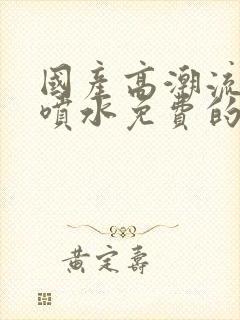 國產高潮流
噴水免費的
黃定壽